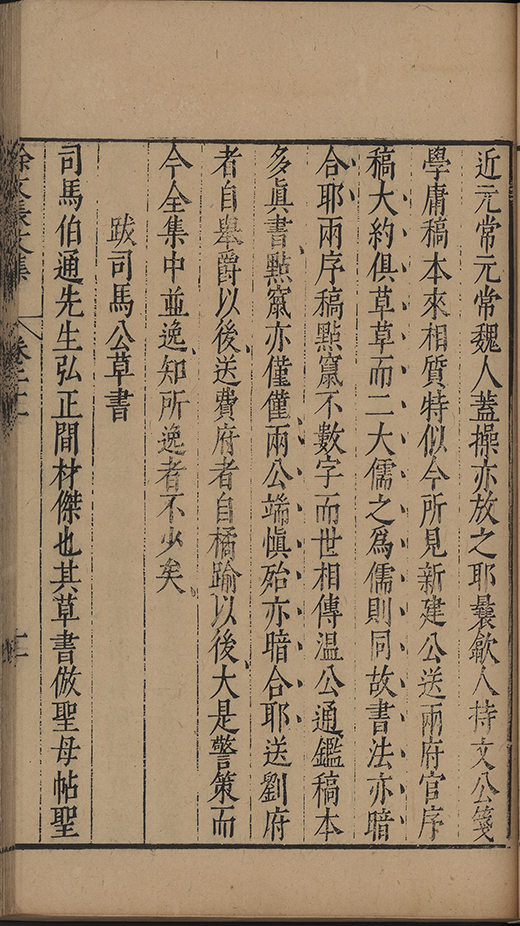 近元常元常魏人蓋操亦放之耶曩歙人持文公箋
學庸稿本來相質特似今所見新建公送兩府官序
稿大約俱草草而二大儒之為儒則同故書法亦暗
合耶兩序稿點竄不數字而世相傳溫公通鑑稿本
多眞書點竄亦僅僅兩公端愼殆亦暗合耶送劉府
者自舉爵以後送費府者自橘踰以後大是警策而
今全集中並逸知所逸者不少矣
跋司馬公草書
司馬伯通先生弘正間材傑也其草書倣聖母帖聖
徐文長文集 卷二十一